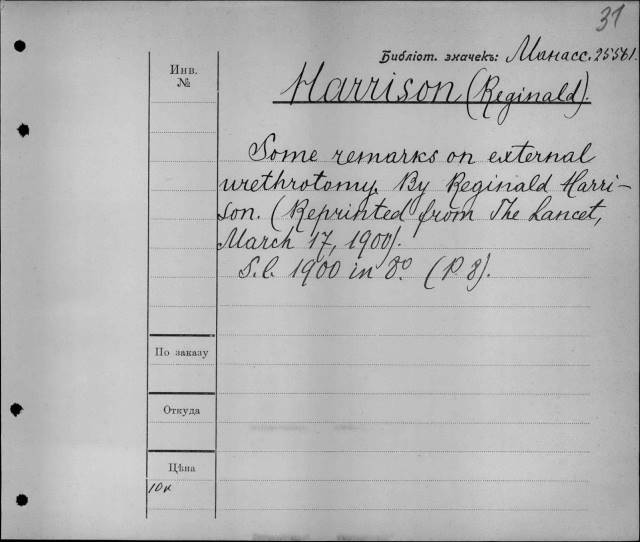 31
Библіот. значекъ: Манасс. 25561.
Инв.
№
Harrison (Reginald).
Some remarks on external
urethrotomy. By Reginald Harri-
son. (Reprinted from The Lancet,
March 17, 1900).
S. l. 1900 in 8º. (P. 8).
По заказу
Откуда
Цѣна
10 к